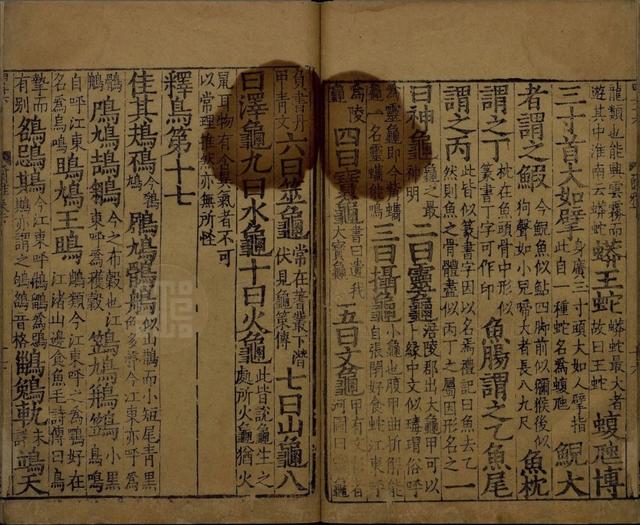 龍類也能興雲霧而遊其中淮南云蟒蛇 蟒王蛇 蟒蛇最大者故曰王蛇 蝮虺博
三寸首大如擘 身廣三寸頭大如人擘指此自一種蛇名為蝮虺 鯢大
者謂之鰕 今鯢魚似鮎四脚前似獼猴後似狗聲如小兒啼大者長八九尺 魚枕
謂之丁 枕在魚頭骨中形似篆書丁字可作印 魚腸謂之乙魚尾
謂之丙 此皆似篆書字因以名焉禮記曰魚去乙然則魚之骨體盡似丙丁之屬因形名之 一
曰神龜 龜之最神明 二曰靈龜 涪陵郡出大龜甲可以卜緣中文似瑇瑁俗呼
為靈龜即今觜蠵龜一名靈蠵能鳴 三曰攝龜 小龜也腹甲曲折解能自張閉好食蛇江東呼
為陵龜 四曰寶龜 書曰遺我大寶龜 五曰文龜 甲有文彩者河圖曰靈龜
負書丹甲青文 六曰筮龜 常在蓍叢下潛伏見龜筴傳 七曰山龜八
曰澤龜九曰水龜十曰火龜 此皆說龜生之處所火龜猶火
鼠耳物有含異氣者不可以常理推然亦無所怪
釋鳥第十七
隹其鳺鴀 今鳩 鶌鳩鶻鵃 似山鵲而小短尾青黑色多聲今江東亦呼為鶻
鵃 鳲鳩鴶鵴 今之布穀也江東呼為穫穀 鷑鳩鵧鷑 小黑鳥鳴
自呼江東名為烏鳴 鴡鳩王鴡 鵰類今江東呼之為鶚好在江渚山邊食魚毛詩傳曰鳥
摯而有別 鵅鵋䳢 今江東呼鵂鶹為鵋䳢亦謂之鴝鵅音格 鶅鵵軌 未詳 鴗天